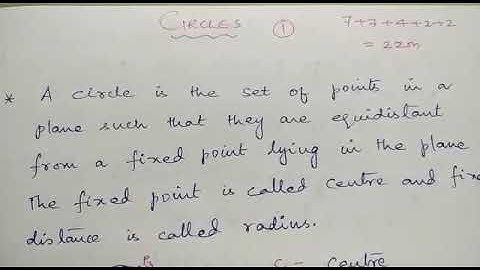 CIRCLES
①
7+7+4+2+2
= 22m
* A circle is the set of points in a
plane such that they are equidistant
from a fixed point lying in the plane
The fixed point is called centre and fixe
distance is called radius.
P₁
C :- centre